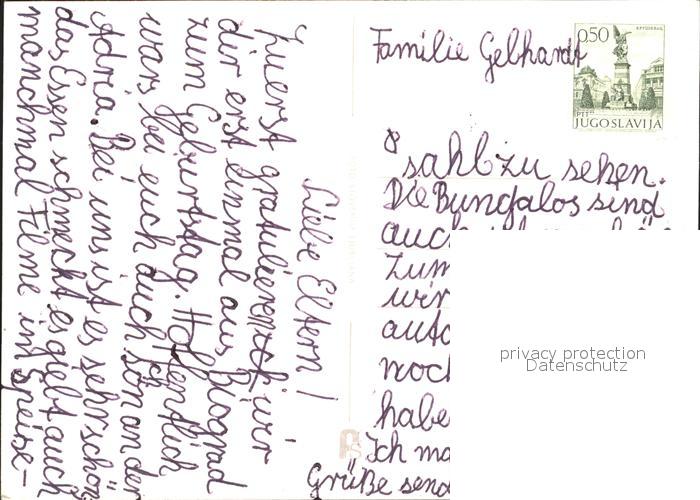 Liebe Eltern!
Zuerst gratulieren wir
dir erst einmal aus Biograd
zum Geburtstag. Hoffentlich
wars bei euch auch so schön an der
Adria. Bei uns ist es sehr schön
das Essen schmeckt es giebt auch
manchmal Filme im Speise-
sahl zu sehen.
Die Bungalos sind
auch
zum
wir
auto
noch
habe
Ich
Grüße send
Familie Gebhardt
0.50
JUGOSLAVIJA
PTT
privacy protection
Datenschutz